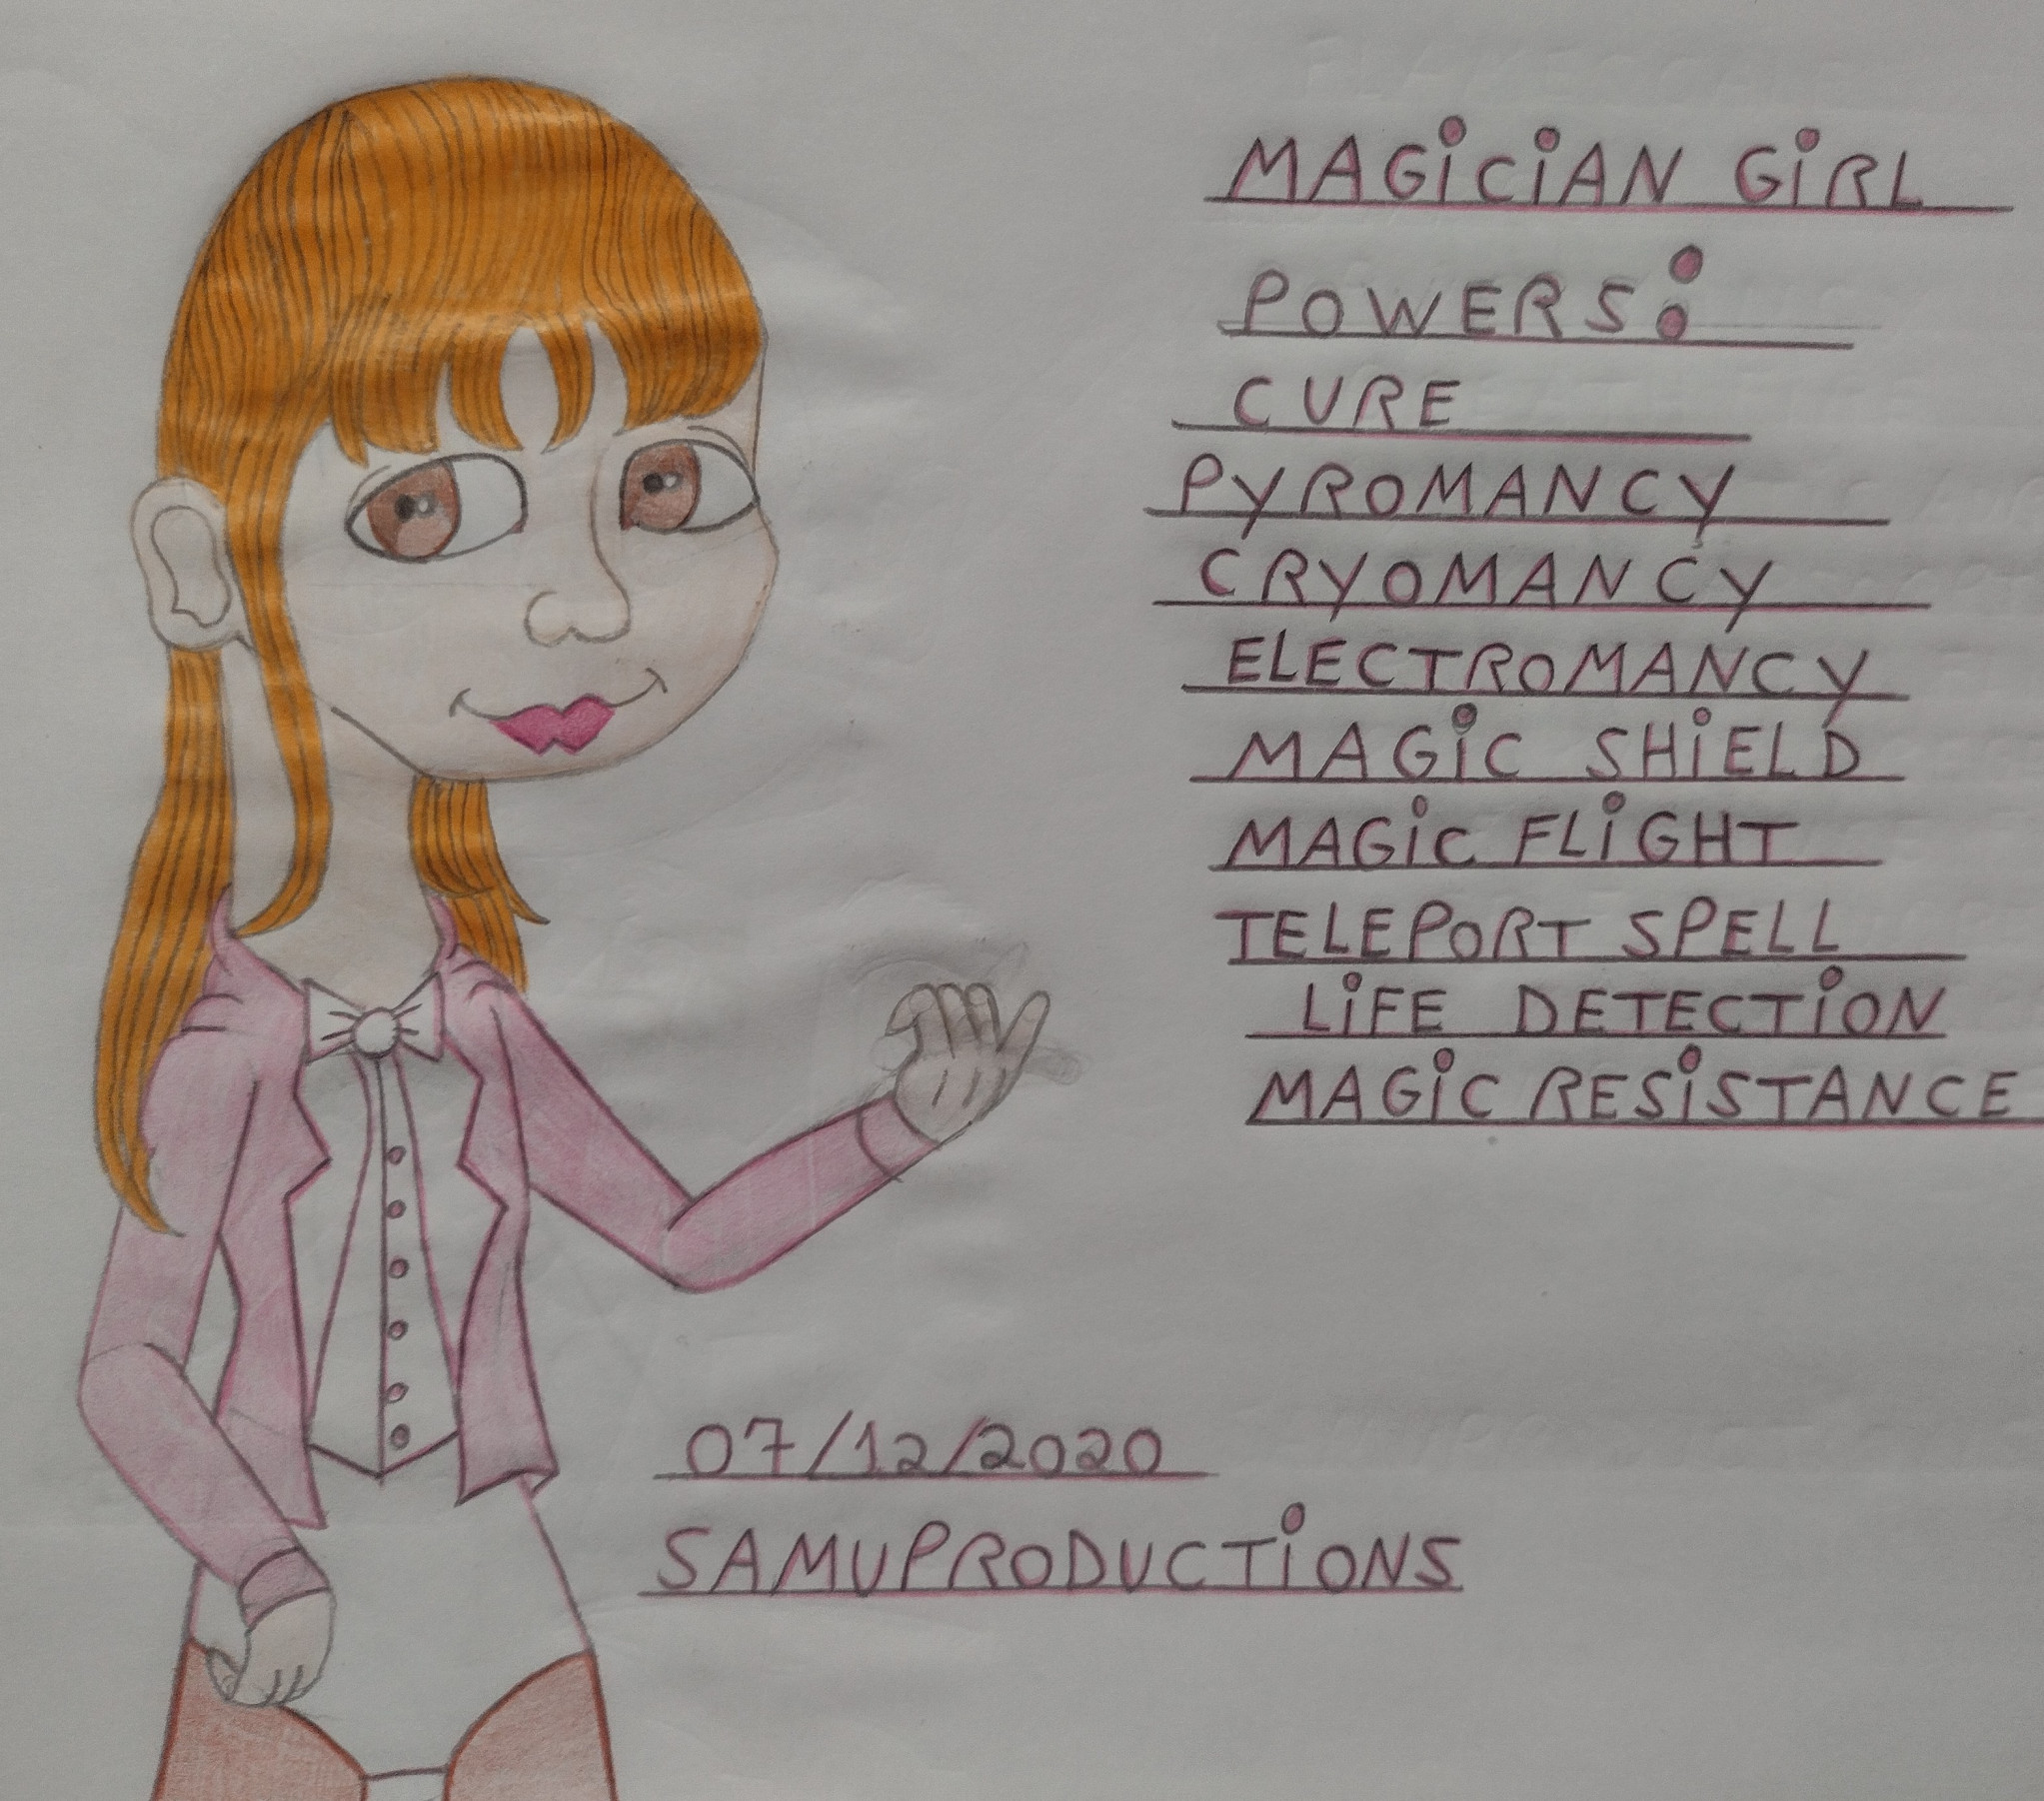 MAGiCiAN GiRL
POWERS:
CURE
PYROMANCY
CRYOMANCY
ELECTROMANCY
MAGiC SHiELD
MAGiC FLiGHT
TELEPORT SPELL
LiFE DETECTiON
MAGiC RESiSTANCE
07/12/2020
SAMUPRODUCTiONS